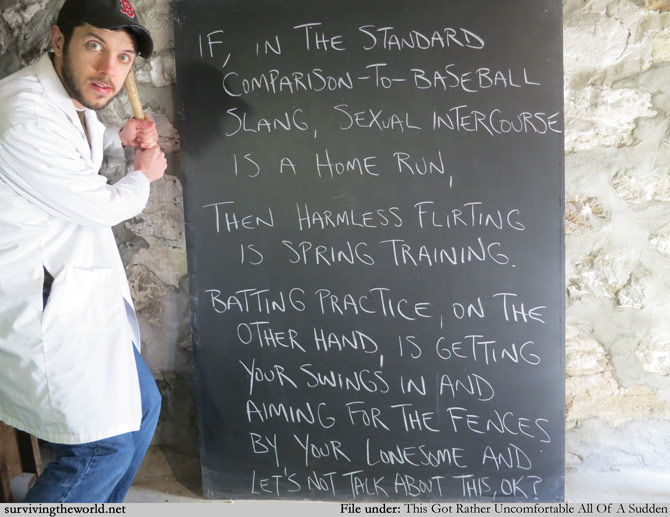 IF, IN THE STANDARD
COMPARISON-TO-BASEBALL
SLANG, SEXUAL INTERCOURSE
IS A HOME RUN,
THEN HARMLESS FLIRTING
IS SPRING TRAINING.
BATTING PRACTICE, ON THE
OTHER HAND, IS GETTING
YOUR SWINGS IN AND
AIMING FOR THE FENCES
BY YOUR LONESOME AND
LET'S NOT TALK ABOUT THIS, OK?
survivingtheworld.net
File under: This Got Rather Uncomfortable All Of A Sudden
B